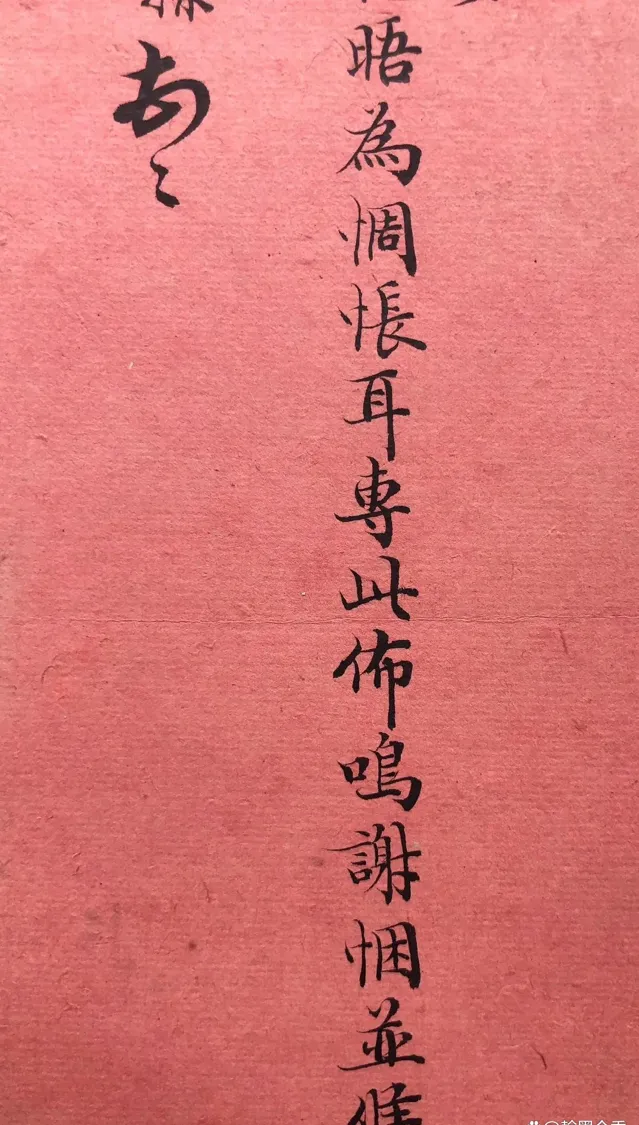 晤為惆悵耳專此佈鳴謝悃並候